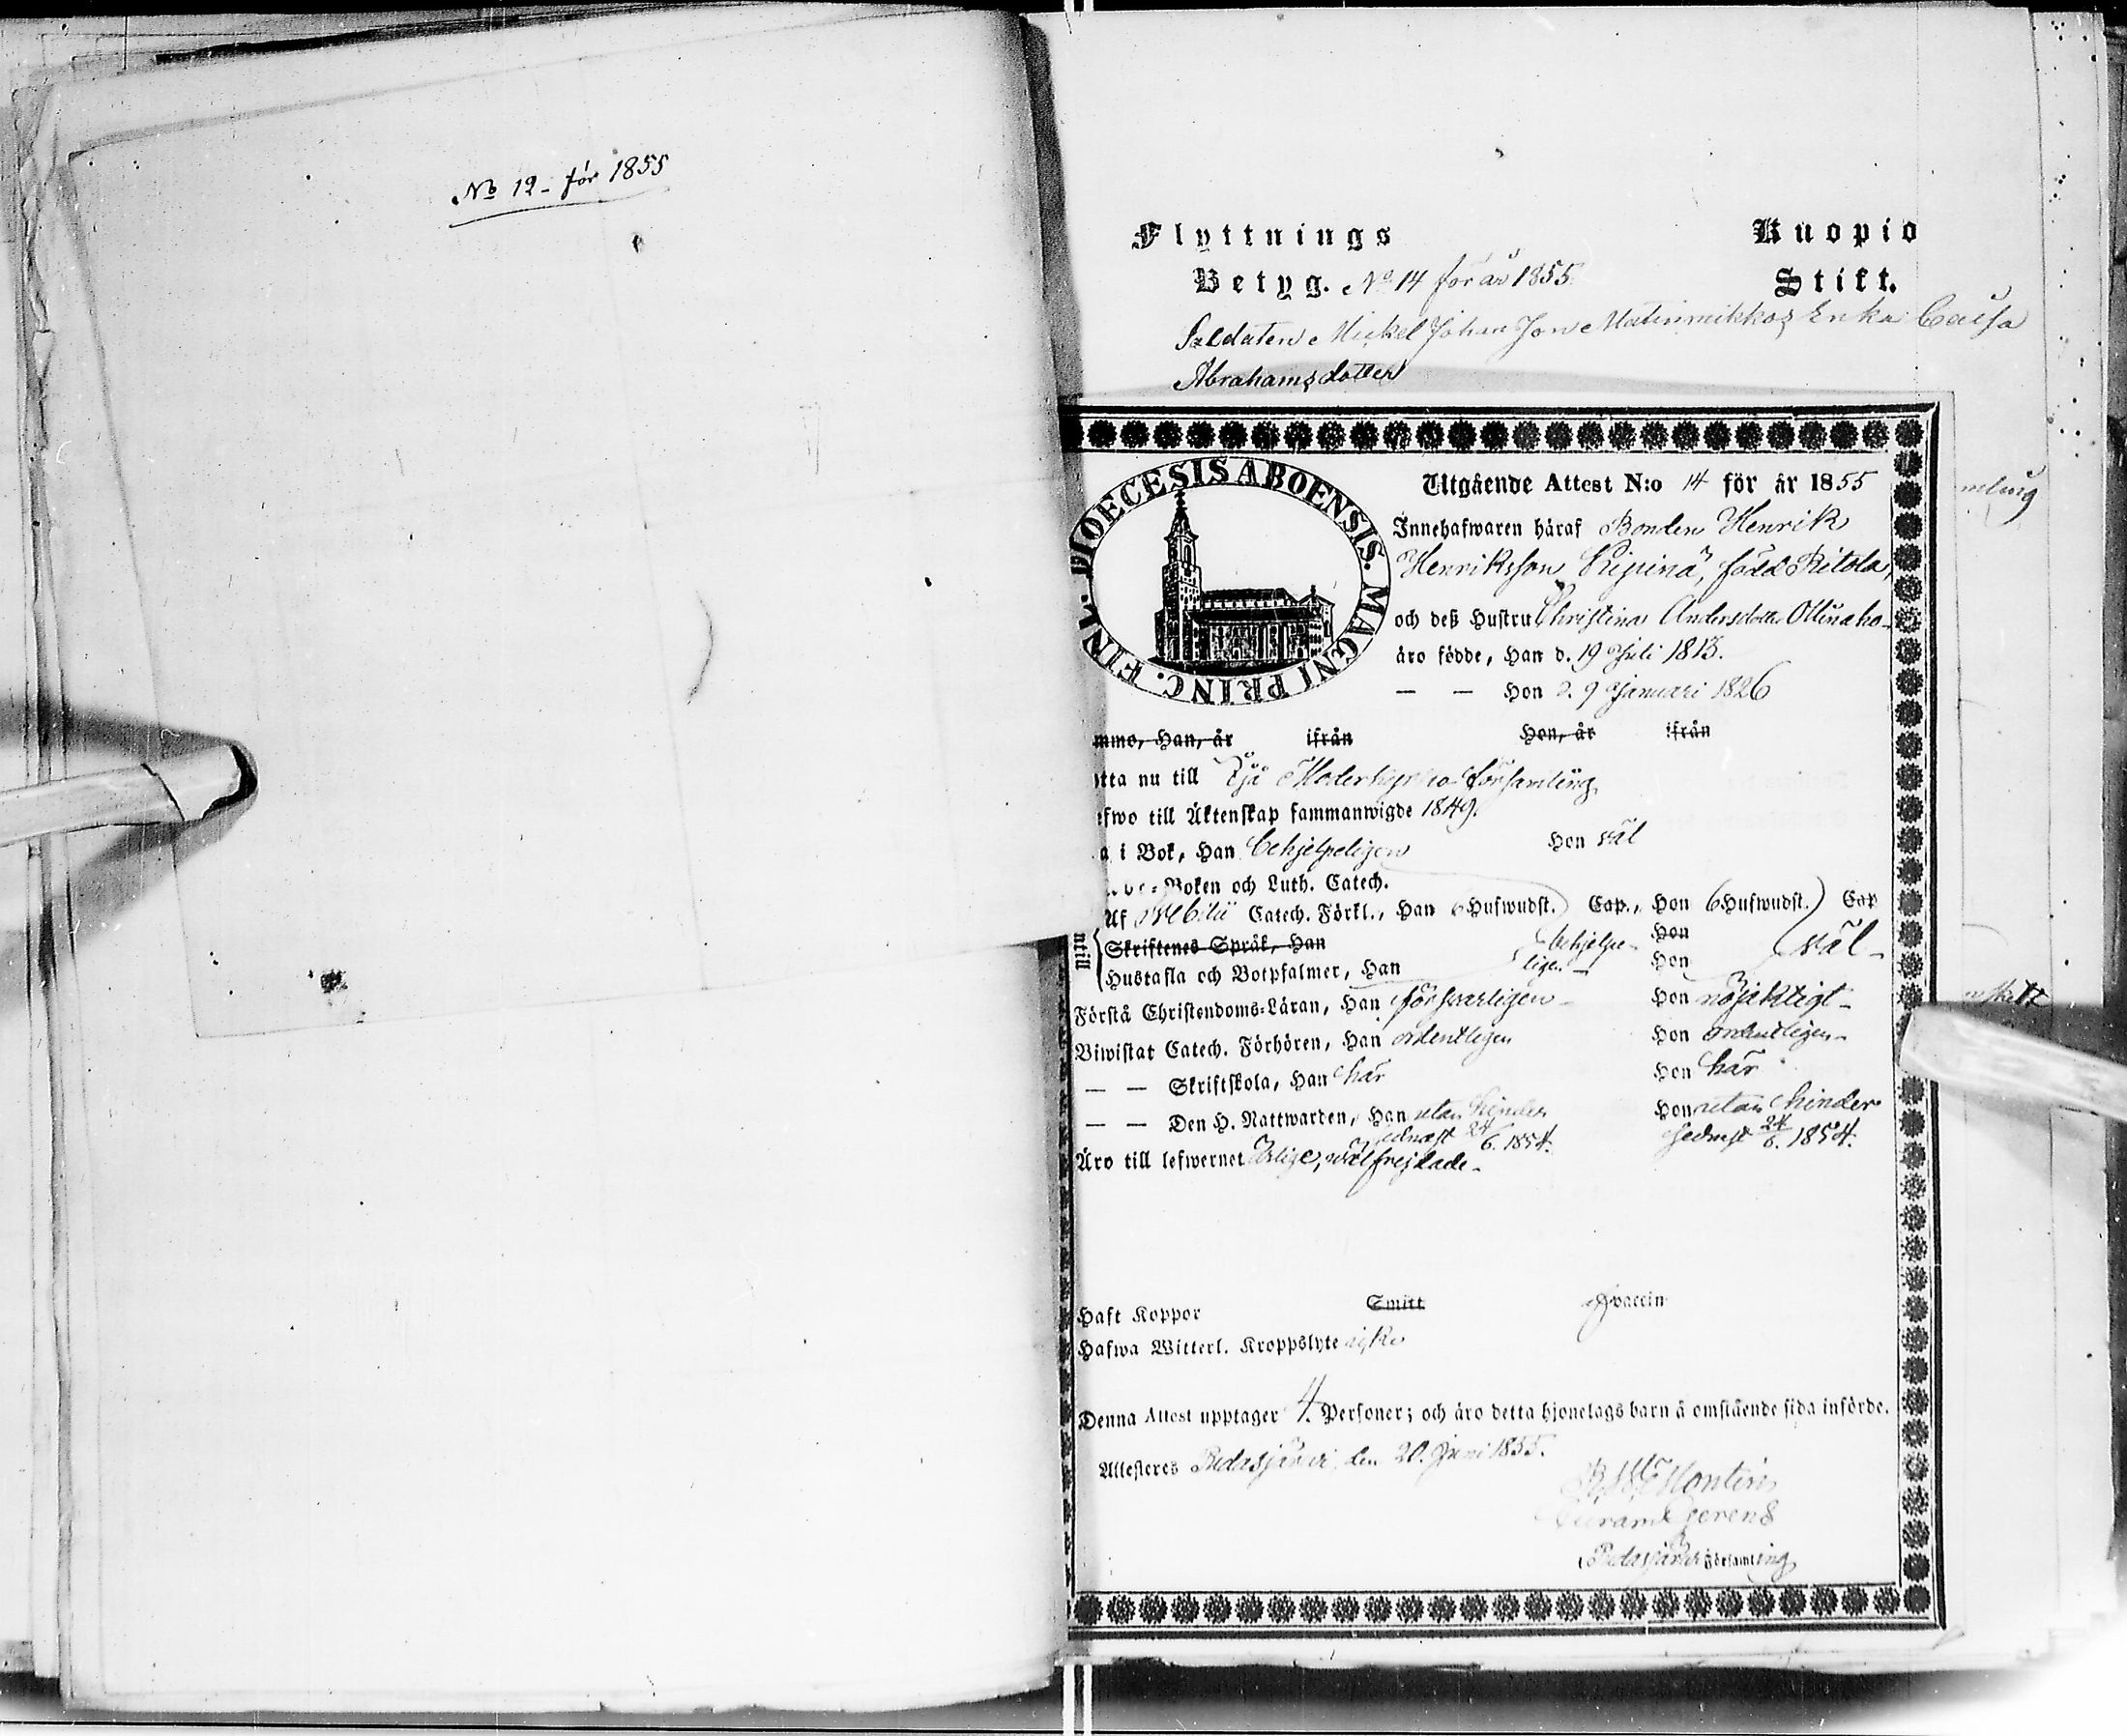 No 12 - för 1855
Flyttnings
Kuopio
Betyg. No 14 för år 1855
Stift.
Soldaten Mickel Johan Jon Matinmikkos Enka Caisa
Abrahamsdotter
mling
DIOECESIS ABOENSIS. MAGNI PRINC. FINL.
Utgående Attest N:o 14 för år 1855
Innehafwaren häraf Bonden Henrik
Henriksson född Ritola,
och deß Hustru Christina Andersdotter Ollinaho
äro födde, Han d. 19 Juli 1813.
— — Hon d. 9 Januari 1826
mmo, Han, år ifrån Hon, år ifrån
tta nu till Ijå Moderkyrko församling
fwo till Äktenskap sammanwigde 1849.
a i Bok, Han behjelpeligen Hon väl
Boken och Luth. Catech.
Af Catech. Förkl., Han 6 Hufwudst. Cap., Hon 6 Hufwudst. Cap
Skriftenes Språk, Han Hon
Hustafla och Botpsalmer, Han behjelpe-ligen Hon väl
ntill
Förstå Christendoms-Läran, Han försvarligen Hon nöjaktigt
Biwistat Catech. Förhören, Han ordentligen Hon ordentligen
— — Skriftskola, Han här Hon här
— — Den H. Nattwarden, Han utan hinder Hon utan hinder
sednast 24/6. 1854. sednast 24/6. 1854.
Äro till lefwernet ärlige, välfrejdade
Haft Koppor Smitt vaccin
Hafwa Witterl. Kroppslyte icke
Denna Attest upptager 4. Personer; och äro detta hjonelags barn å omstående sida införde.
Attesteras Pudasjärvi den 20. Juni 1855.
Montin
Curam Gerens
Pudasjärvi Församling